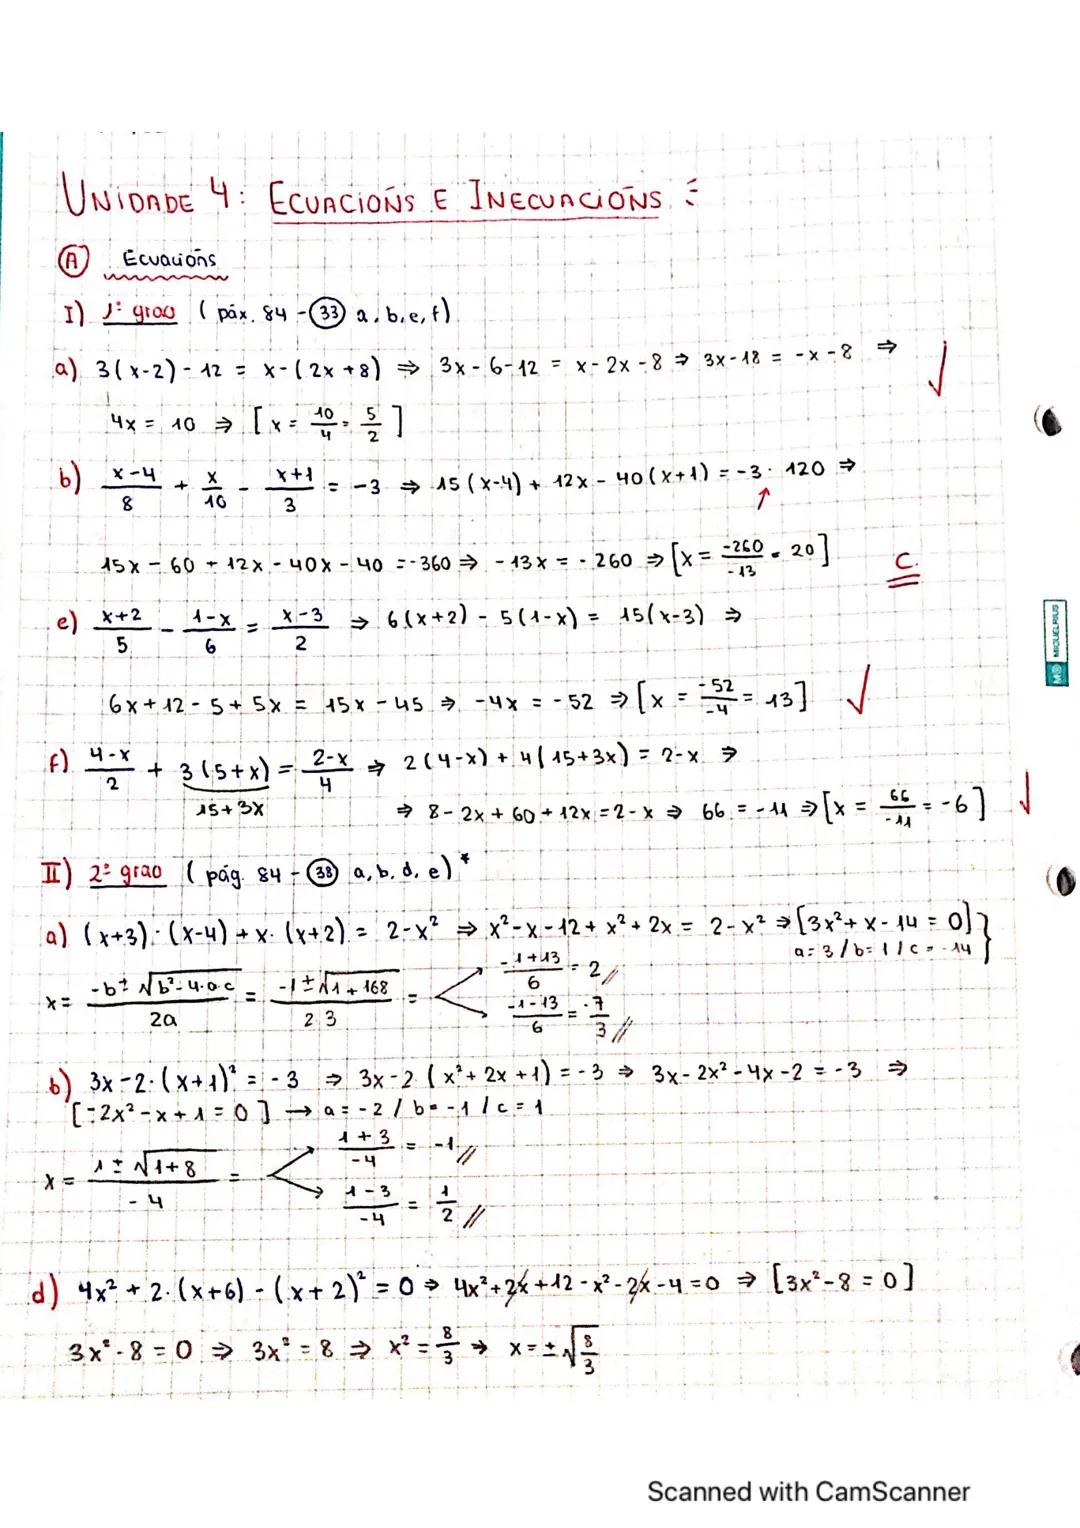 UNIDADE 4: ECUACIÓNS E INECUACIÓNS :
Ⓐ Ecuacións
I) 1º grao ( páx. 84 - ㉝ a, b, e, f)
a) 3(x-2) - 12 = x - (2x+8) ⇒ 3x - 6 - 12 = x - 2x - 8 ⇒ 3x - 18 = -x - 8 ⇒ ✓
4x = 10 ⇒ [x = 10/4 = 5/2]
b) (x-4)/8 + x/10 - (x+1)/3 = -3 ⇒ 15(x-4) + 12x - 40(x+1) = -3 · 120 ⇒
↑
15x - 60 + 12x - 40x - 40 = -360 ⇒ -13x = -260 ⇒ [x = -260/-13 = 20] C.
e) (x+2)/5 - (1-x)/6 = (x-3)/2 ⇒ 6(x+2) - 5(1-x) = 15(x-3) ⇒
6x + 12 - 5 + 5x = 15x - 45 ⇒ -4x = -52 ⇒ [x = -52/-4 = 13] ✓
f) (4-x)/2 + 3(5+x) = (2-x)/4 ⇒ 2(4-x) + 4(15+3x) = 2-x ⇒
15+3x
⇒ 8 - 2x + 60 + 12x = 2 - x ⇒ 66 = -11 ⇒ [x = 66/-11 = -6] ✓
II) 2º grao ( pág. 84 - ㊳ a, b, d, e) *
a) (x+3) · (x-4) + x · (x+2) = 2-x² ⇒ x² - x - 12 + x² + 2x = 2 - x² ⇒ [3x² + x - 14 = 0] }
a = 3 / b = 1 / c = -14
x = (-b ± √(b² - 4·a·c))/2a = (-1 ± √(1+168))/(2·3) = < (-1+13)/6 = 2 //
(-1-13)/6 = -7/3 //
b) 3x - 2 · (x+1)² = -3 ⇒ 3x - 2 (x² + 2x + 1) = -3 ⇒ 3x - 2x² - 4x - 2 = -3 ⇒
[-2x² - x + 1 = 0] → a = -2 / b = -1 / c = 1
x = (1 ± √(1+8))/-4 = < (1+3)/-4 = -1 //
(1-3)/-4 = 1/2 //
d) 4x² + 2 · (x+6) - (x+2)² = 0 ⇒ 4x² + 2x + 12 - x² - 2x - 4 = 0 ⇒ [3x² - 8 = 0]
3x² - 8 = 0 ⇒ 3x² = 8 ⇒ x² = 8/3 → x = ± √(8/3)
MIQUELRIUS
Scanned with CamScanner